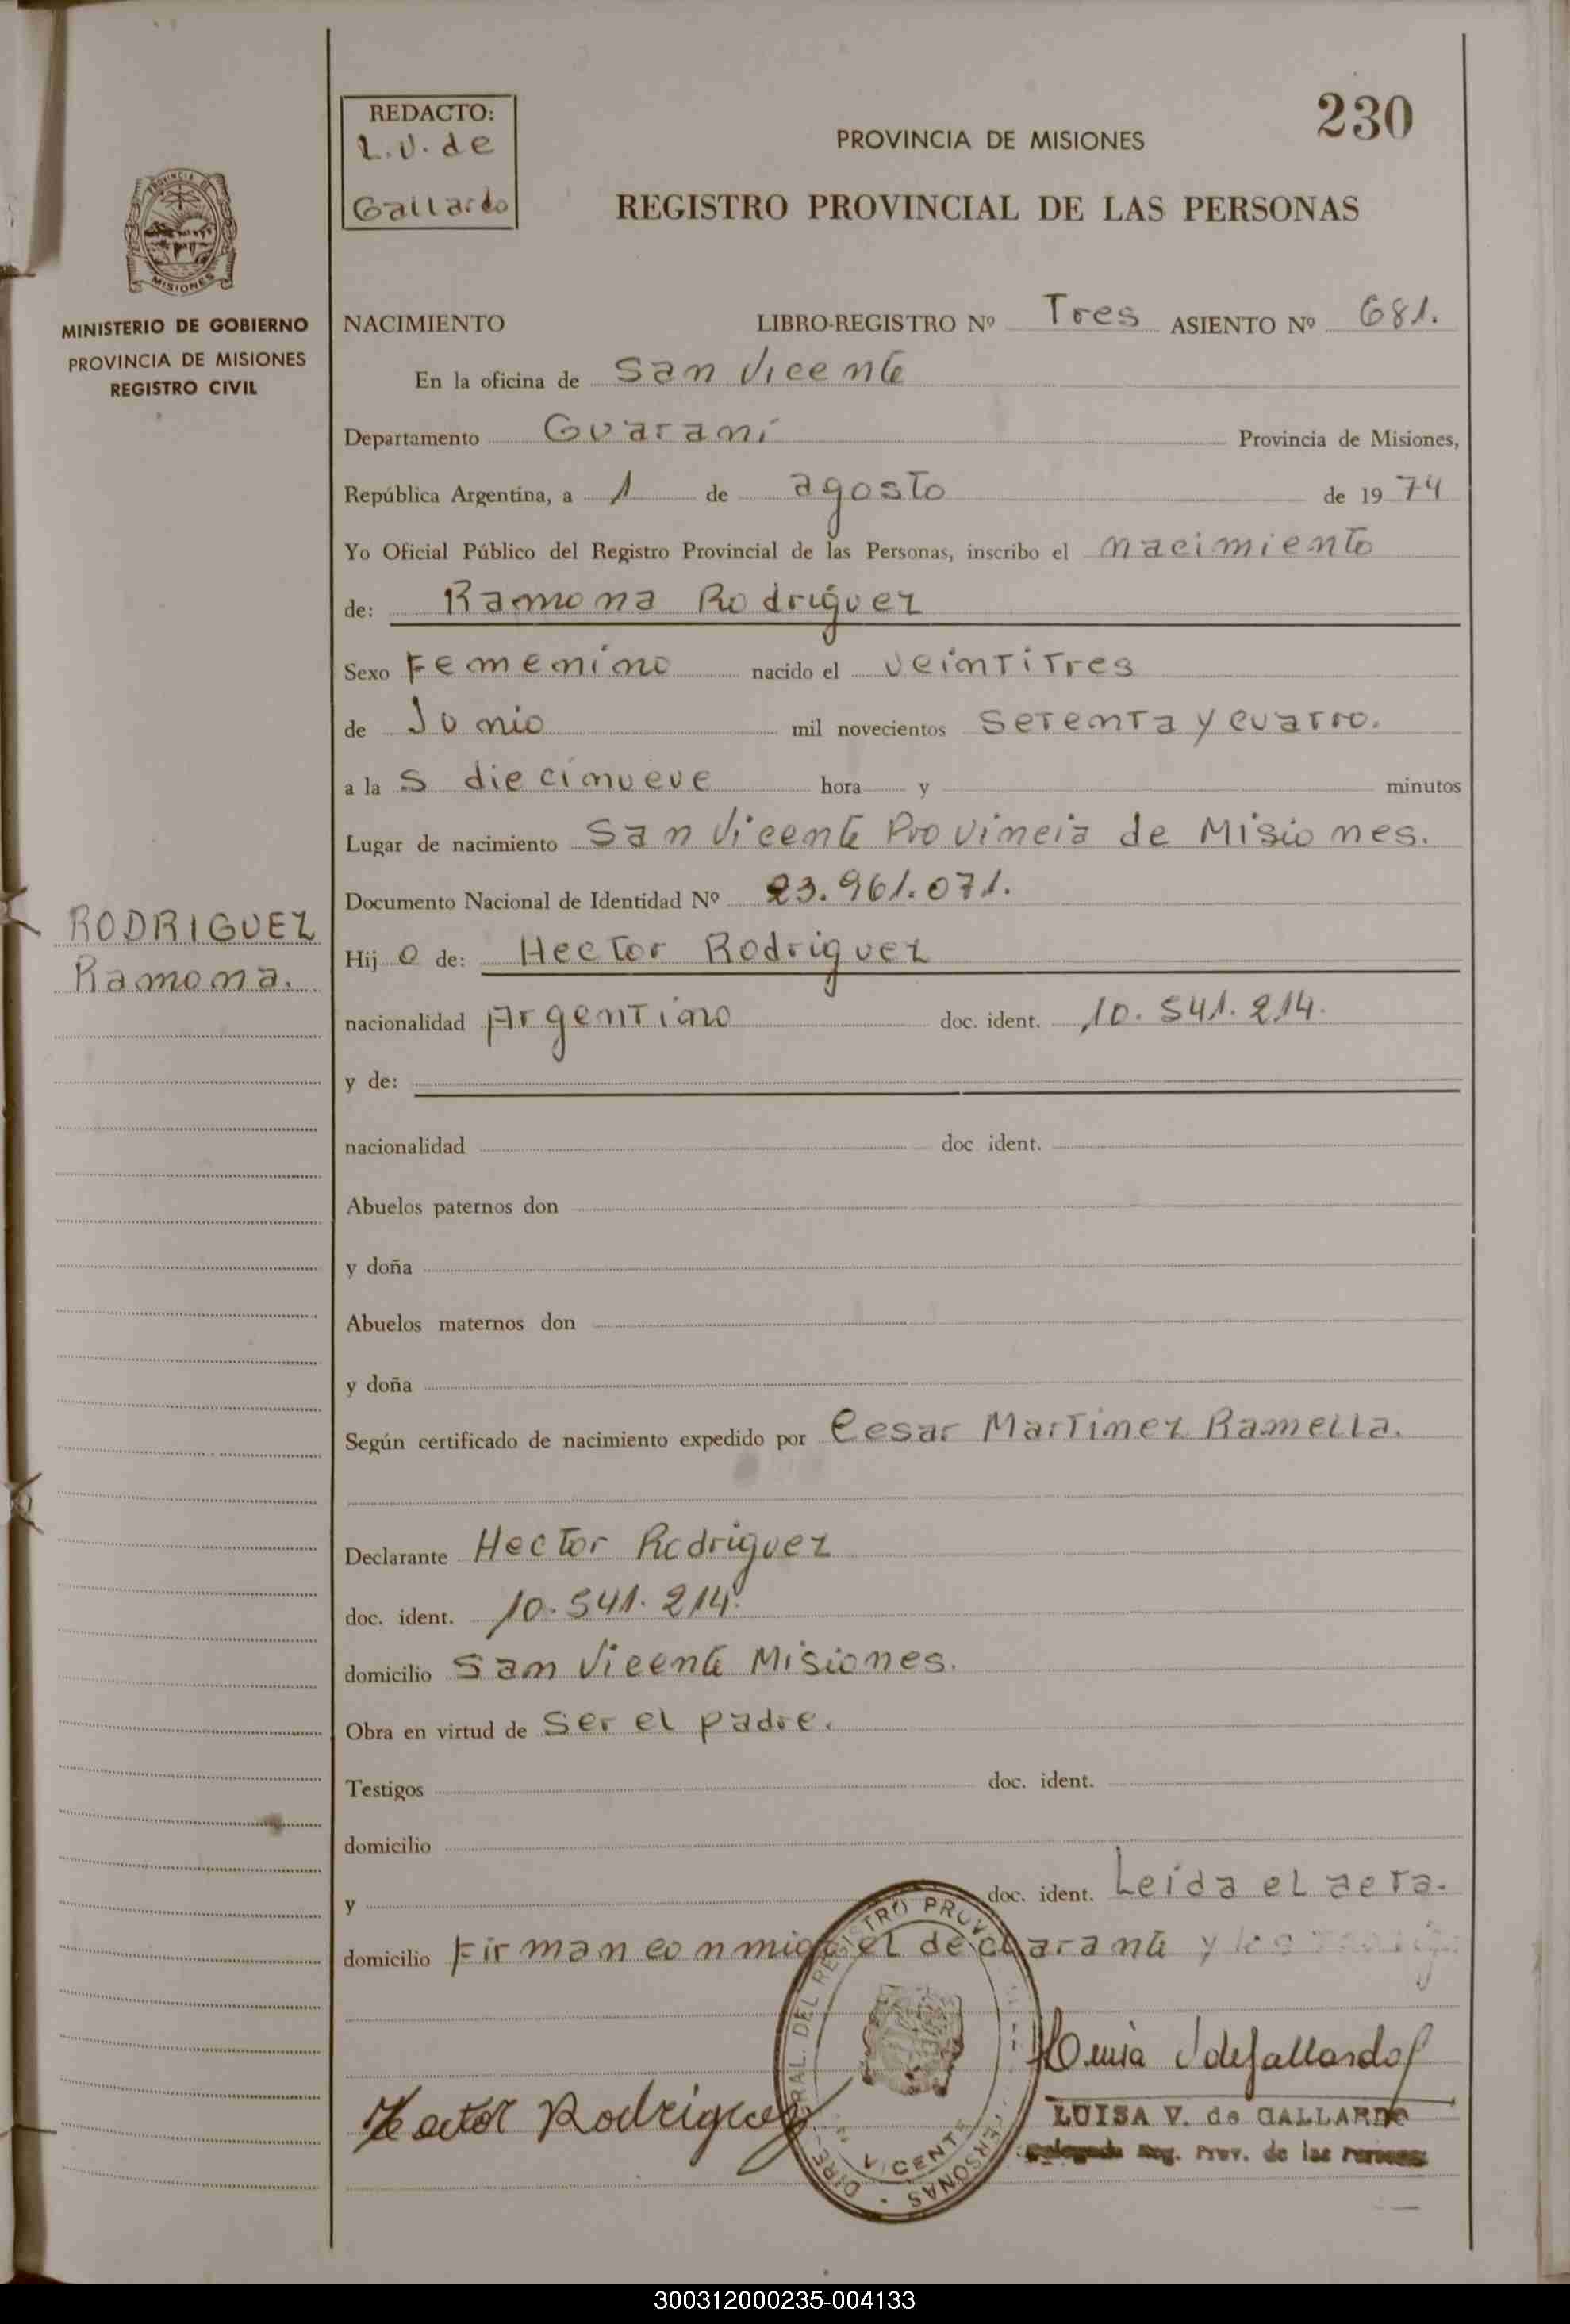 REDACTO:
L.V. de
Gallardo
230
PROVINCIA DE MISIONES
REGISTRO PROVINCIAL DE LAS PERSONAS
PROVINCIA DE
MISIONES
MINISTERIO DE GOBIERNO
PROVINCIA DE MISIONES
REGISTRO CIVIL
NACIMIENTO LIBRO-REGISTRO Nº Tres ASIENTO Nº 681.
En la oficina de San Vicente
Departamento Guaraní Provincia de Misiones,
República Argentina, a 1 de agosto de 1974
Yo Oficial Público del Registro Provincial de las Personas, inscribo el nacimiento
de: Ramona Rodriguez
Sexo Femenino nacido el veintitres
de Junio mil novecientos setenta y cuatro.
a la s diecinueve hora y minutos
Lugar de nacimiento San Vicente Provincia de Misiones.
Documento Nacional de Identidad Nº 23.961.071.
RODRIGUEZ
Ramona.
Hij a de: Hector Rodriguez
nacionalidad Argentino doc. ident. 10.541.214.
y de:
nacionalidad doc. ident.
Abuelos paternos don
y doña
Abuelos maternos don
y doña
Según certificado de nacimiento expedido por Cesar Martinez Ramella.
Declarante Hector Rodriguez
doc. ident. 10.541.214.
domicilio San Vicente Misiones.
Obra en virtud de ser el padre.
Testigos doc. ident.
domicilio
y doc. ident. Leída el acta.
domicilio Firman conmigo el declarante y los
Hector Rodriguez
Luisa V de Gallardo
LUISA V. de GALLARDO
Delegada Reg. Prov. de las Personas
VICENTE
300312000235-004133